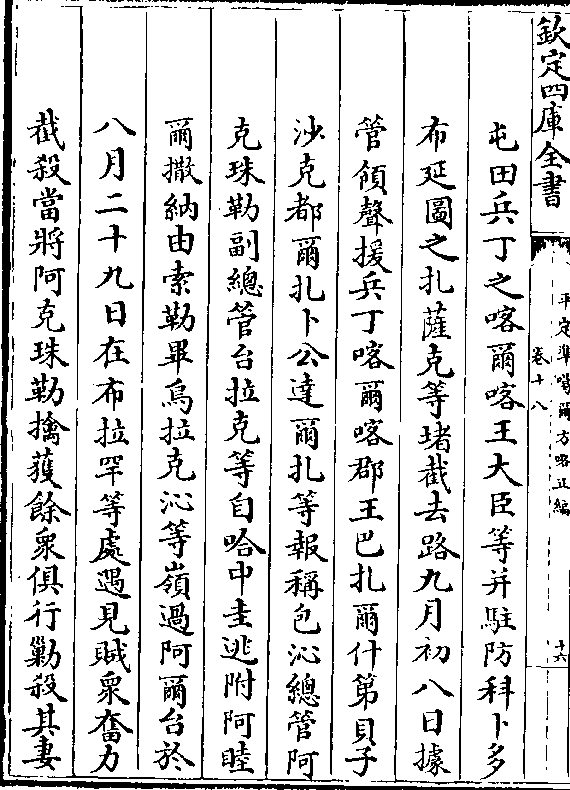 欽定四庫全書
平定準噶爾方略正編
卷十八
十六
屯田兵丁之喀爾喀王大臣等并駐防科卜多
布延圖之扎薩克等堵截去路九月初八日據
管領聲援兵丁喀爾喀郡王巴扎爾什第貝子
沙克都爾扎卜公達爾扎等報稱包沁總管阿
克珠勒副總管台拉克等自哈中圭逃附阿睦
爾撒納由索勒畢烏拉克沁等嶺過阿爾台於
八月二十九日在布拉罕等處遇見賊衆奮力
截殺當將阿克珠勒擒獲餘衆俱行勦殺其妻